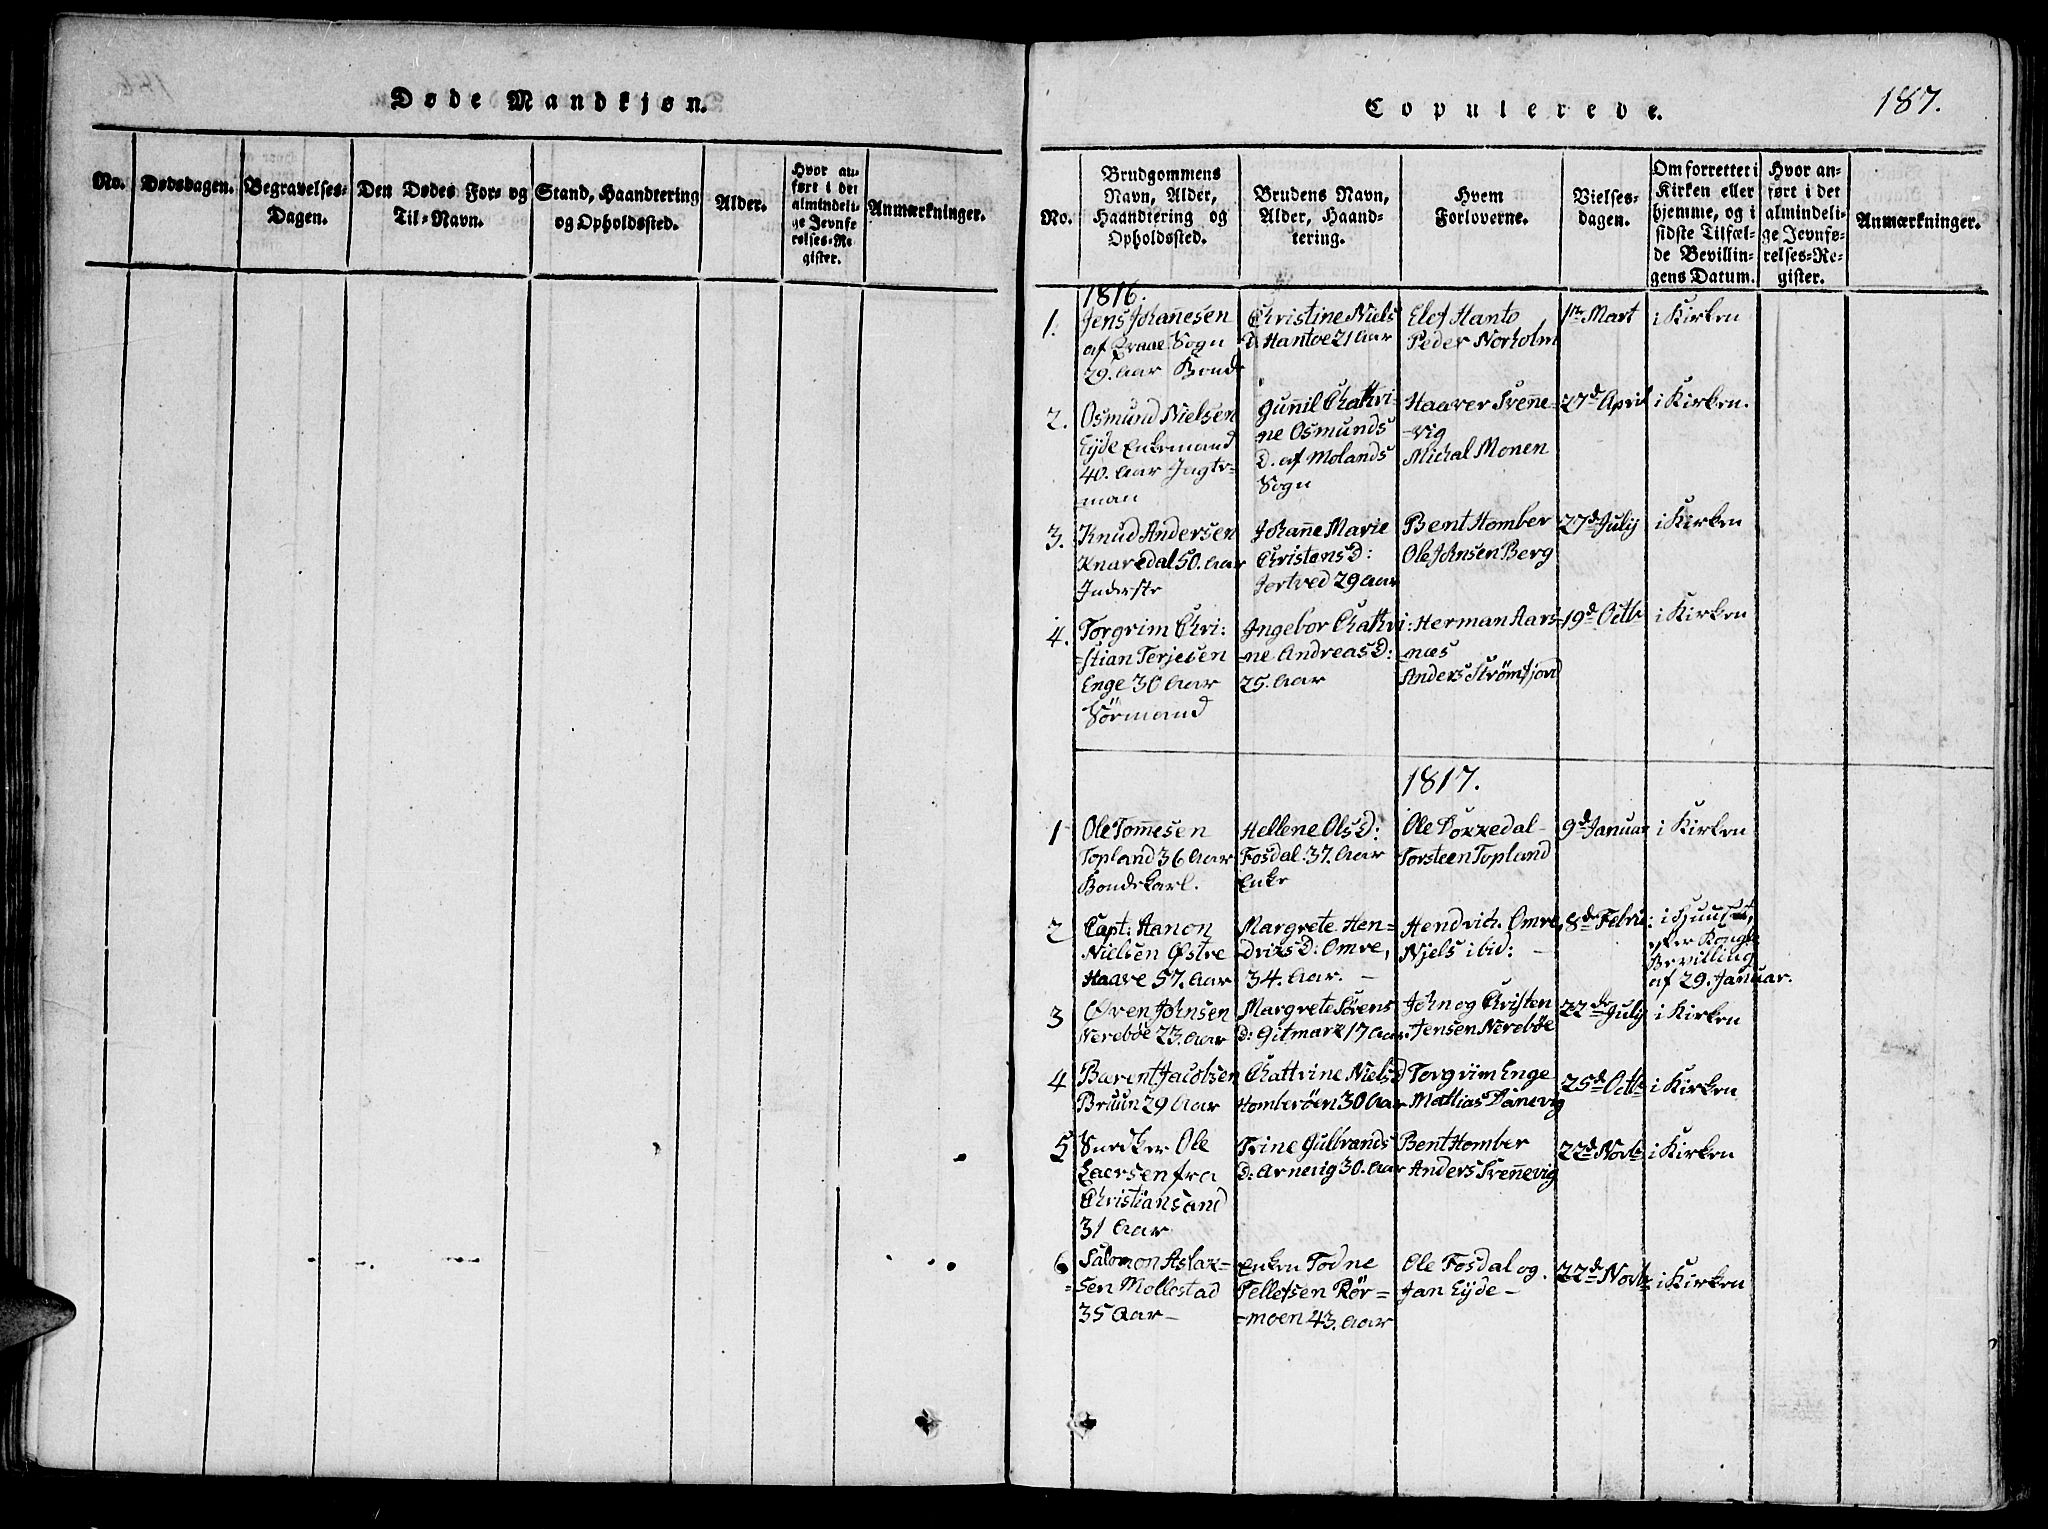 Døde Mandkjøn.
No.
Dødsdagen.
Begravelses-
Dagen.
Den Dødes For- og
Til-Navn.
Stand, Haandtering
og Opholdssted.
Alder.
Hvor an-
ført i det
almindeli-
ge Jevnfø-
relses-Re
gister.
Anmærkninger.
Copulerede.
187.
No.
Brudgommens
Navn, Alder,
Haandtering og
Opholdssted.
Brudens Navn,
Alder, Haand-
tering.
Hvem
Forloverne.
Vielses-
dagen.
Om forrettet i
Kirken eller
hjemme, og i
sidste Tilfæl-
de Bevillin-
gens Datum.
Hvor an-
ført i det
almindeli-
ge Jevnfø-
relses-Re-
gister.
Anmærkninger.
1816.
1.
Jens Johanesen
af Sogn
29. Aar Bonde
Christine Niels
D. Hantoe 21 Aar
Elef Hanto
Peder Norholm
1ste Mart
i Kirken
2.
Osmund Nielsen
Eyde Enkemand
40. Aar Jagte=
=man
Gunnil Chathri-
ne Osmunds
D. af Molands
Sogn
Haaver Svenne-
-vig
Michal Monen
27d April
i Kirken.
3.
Knud Andersen
Knaredal 50. Aar
Inderste
Johanne Marie
Christens D:
Jortved 29 Aar
Bent Homber
Ole Johnsen Berg
27d July
i Kirken
4.
Torgrim Chri:
=stian Terjesen
Enge 30 Aar
Sörmand
Ingebor Chathri:
-ne Andreas D:
25. Aar
Herman Aars-
-næs
Anders Strömfjord
19d Octb
i Kirken
1817.
1
Ole Tommesen
Topland 36 Aar
Bondekarl.
Hellene Ols D:
Fosdal. 37. Aar
Enke
Ole Dokkedal-
Torsteen Topland
9d Januar
i Kirken
2
Capt: Hanon
Nielsen Østre
Haave 57. Aar
Margrete Hen=
=driks D: Omre,
34. Aar. -
Hendrich Omre,
Niels ibid: -
8d Febru:
i Huuset,
efter Kongl:
Bevilling
af 29. Januar.
3
Øven Johnsen
Nerebøe 23. Aar
Margrete Sörens
D: Gitmark 17 Aar.
John og Christen
Jensen Nerebøe
22de July
i Kirken
4
Barent Jacobsen
Bruun 29 Aar
Chattrine Niels D
Homberöen 30 Aar
Torgrim Enge
Mattias Danevig
25d Octb
i Kirken
5
Snedker Ole
Laersen fra
Christiansand
31 Aar
Trine Gulbrands
D: Arnevig 30. Aar
Bent Homber
Anders Svennevig
22d Novb
i Kirken
6
Salomon Aslak=
=sen Mollestad
35 Aar -
Enken Todne
Tellefsen Rör=
=moen 43. Aar
Ole Fosdal og
Jan Eyde -
22d Novb
i Kirken